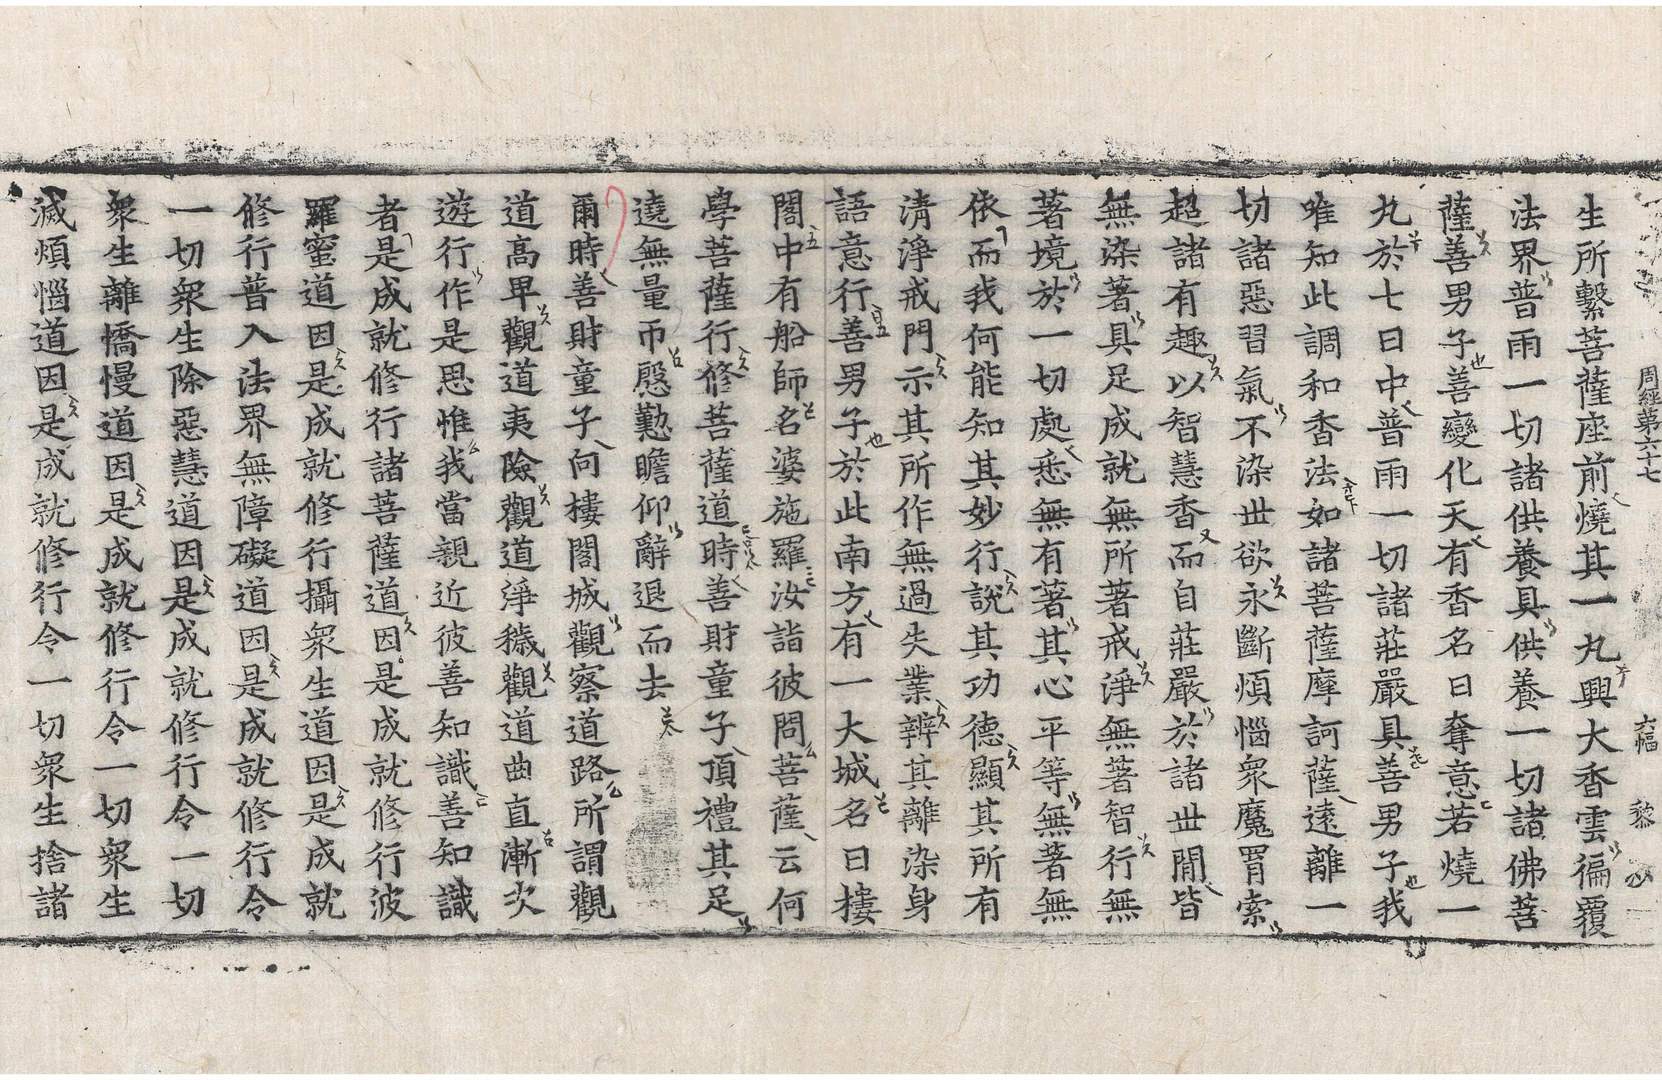 周經第六十七 六幅 黎
生所繫菩薩座前燒其一丸興大香雲徧覆
法界普雨一切諸供養具供養一切諸佛菩
薩善男子善變化天有香名曰奪意若燒一
丸於七日中普雨一切諸莊嚴具善男子我
唯知此調和香法如諸菩薩摩訶薩遠離一
切諸惡習氣不染世欲永斷煩惱衆魔罥索
超諸有趣以智慧香而自莊嚴於諸世間皆
無染著具足成就無所著戒淨無著智行無
著境於一切處悉無有著其心平等無著無
依而我何能知其妙行說其功德顯其所有
清淨戒門示其所作無過失業辨其離染身
語意行善男子於此南方有一大城名曰樓
閣中有船師名婆施羅汝詣彼問菩薩云何
學菩薩行修菩薩道時善財童子頂禮其足
遶無量帀慇懃瞻仰辭退而去
爾時善財童子向樓閣城觀察道路所謂觀
道高卑觀道夷險觀道淨穢觀道曲直漸次
遊行作是思惟我當親近彼善知識善知識
者是成就修行諸菩薩道因是成就修行波
羅蜜道因是成就修行攝衆生道因是成就
修行普入法界無障礙道因是成就修行令
一切衆生除惡慧道因是成就修行令一切
衆生離憍慢道因是成就修行令一切衆生
滅煩惱道因是成就修行令一切衆生捨諸